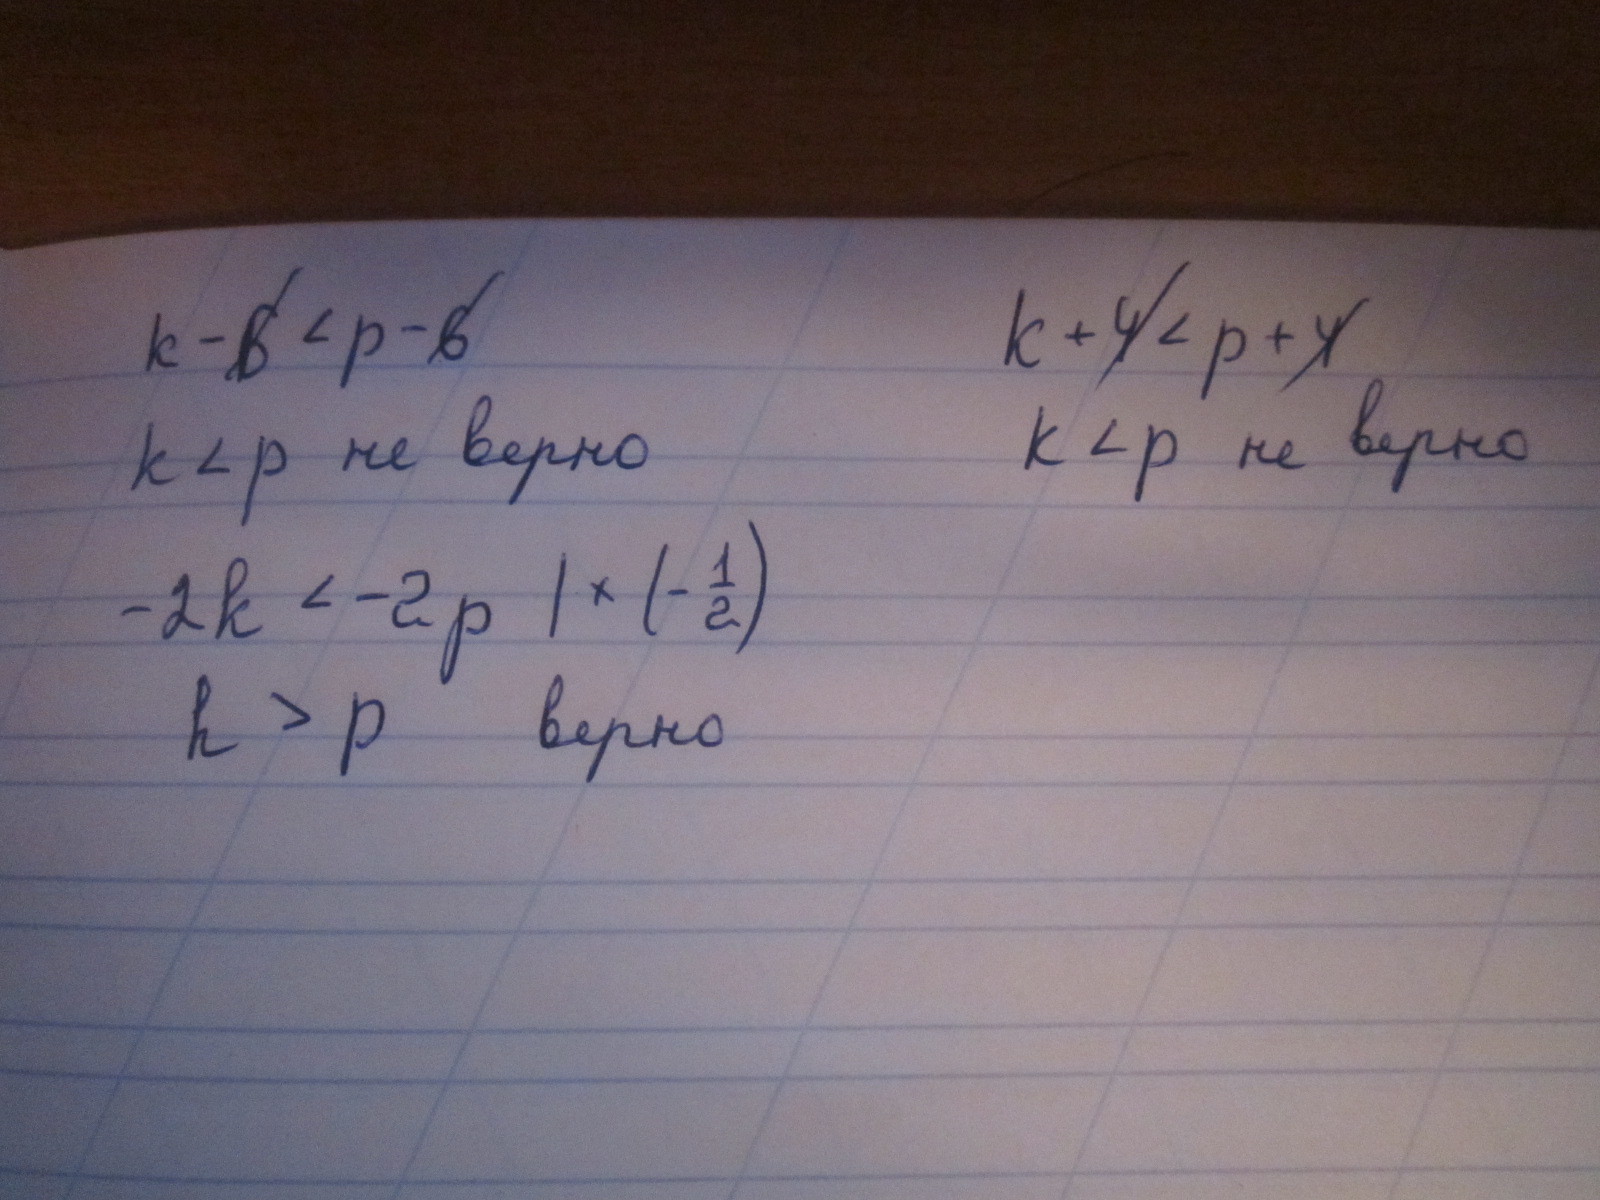 k - 6 < p - 6
k < p не верно
-2k < -2p | × (-1/2)
k > p верно
k + 4 < p + 4
k < p не верно